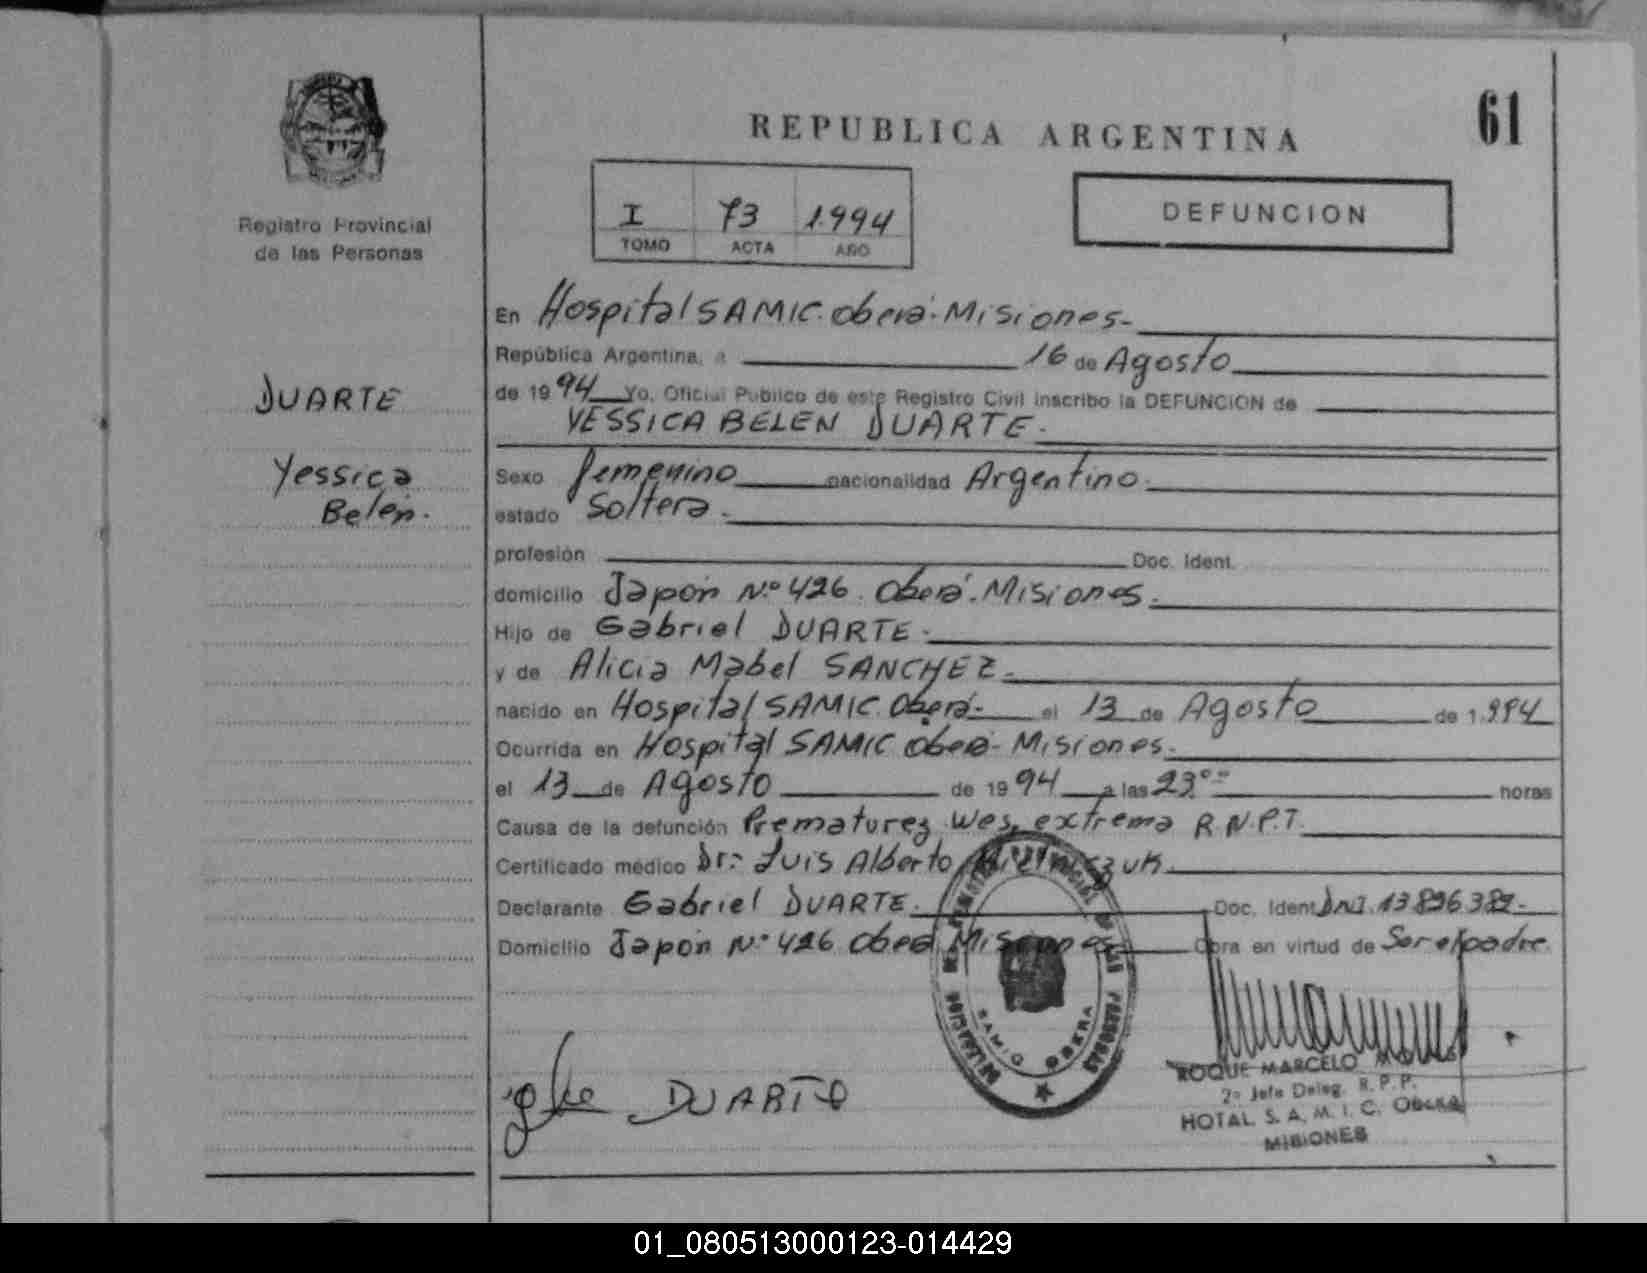 61
REPUBLICA ARGENTINA
Registro Provincial
de las Personas
I 73 1.994
TOMO ACTA AÑO
DEFUNCION
DUARTE
Yessica
Belén.
En Hospital SAMIC. Oberá - Misiones.-
República Argentina, a 16 de Agosto
de 1994 Yo, Oficial Público de este Registro Civil inscribo la DEFUNCION de
YESSICA BELEN DUARTE.
Sexo femenino nacionalidad Argentino.
estado Soltera.
profesión Doc. Ident.
domicilio Japón N.º 426. Oberá. Misiones.
Hijo de Gabriel DUARTE.
y de Alicia Mabel SANCHEZ.
nacido en Hospital SAMIC. Oberá- el 13 de Agosto de 1.994
Ocurrida en Hospital SAMIC Oberá- Misiones.
el 13 de Agosto de 1994 a las 23 horas
Causa de la defunción Prematurez extrema R.N.P.T.
Certificado médico Dr.: Luis Alberto
Declarante Gabriel DUARTE. Doc. Ident D.N.I. 13896389.-
Domicilio Japón N.º 426. Oberá Misiones Obra en virtud de Ser el padre.
SAMIC OBERA
DUARTE
ROQUE MARCELO
2º Jefe Deleg. R.P.P.
HOTAL. S. A. M. I. C. OBERA
MISIONES
01_080513000123-014429